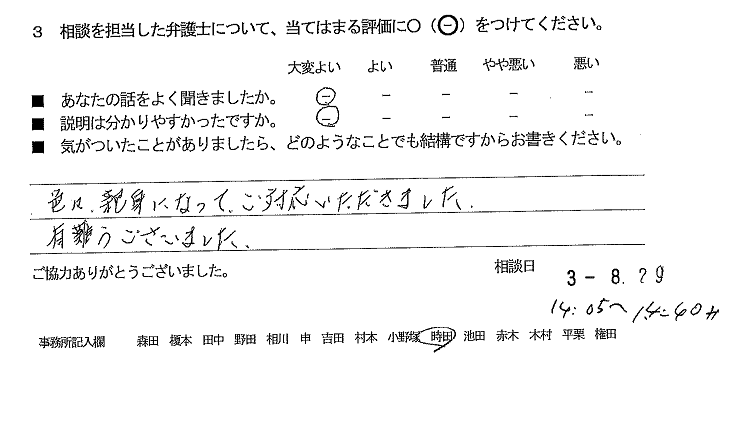 3 相談を担当した弁護士について、当てはまる評価に〇（㊀）をつけてください。
大変よい よい 普通 やや悪い 悪い
■ あなたの話をよく聞きましたか。 － － － － －
■ 説明は分かりやすかったですか。 － － － － －
■ 気がついたことがありましたら、どのようなことでも結構ですからお書きください。
色々、親身になって、ご対応いただきました。
有難うございました。
ご協力ありがとうございました。
相談日 3－8.29
14:05～14:40分
事務所記入欄 森田 榎本 田中 野田 相川 申 吉田 村本 小野塚 時田 池田 赤木 木村 平栗 権田